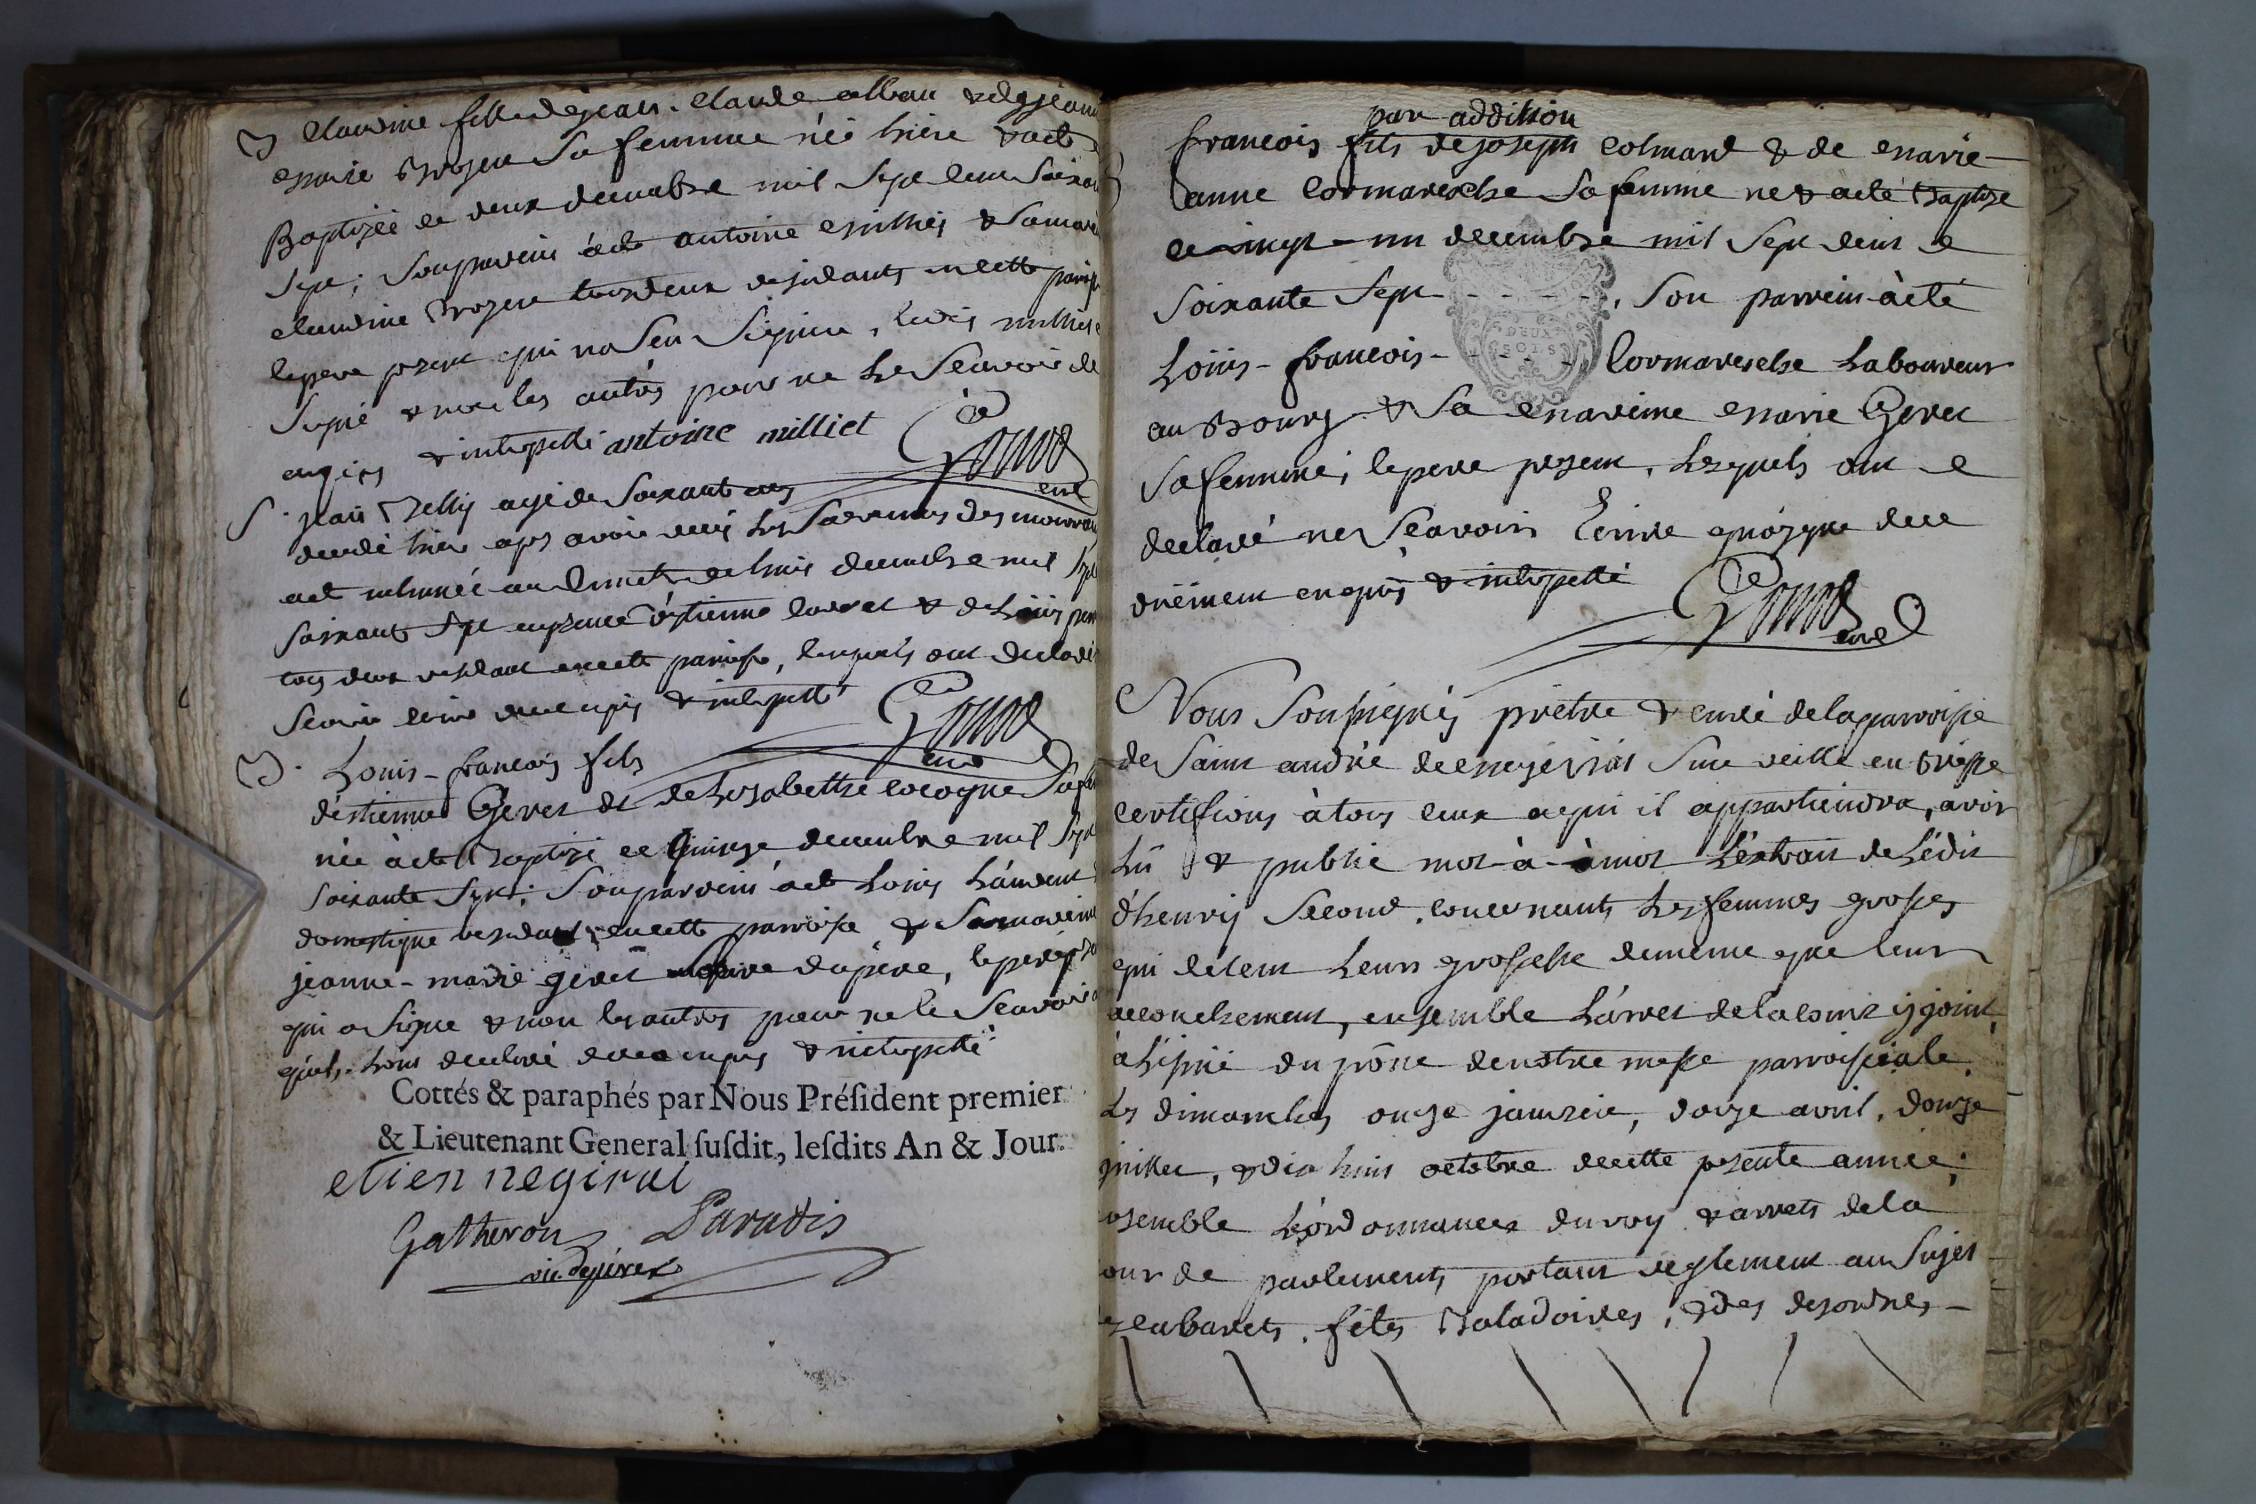 B Claudine fille de jean-Claude alban & de jeanne
marie Broyer sa femme née hiere & acté
Baptizée le deux decembre mil Sept cent Soixante
Sept; Son parrein acté antoine millies & sa mareine
claudine Broyer tous deux residants en cette paroisse
le pere present qui na sceu signer, ledit milliet
Signé & non les autres pour ne le Scavoir de
enquis & interpellé antoine milliet Gonod
curé
S. jean Belly agé de Soixante ans
decedé hier aprs avoir recû les Sacremens des mourans
acté inhumée au Cimetiere le huit decembre mil Sept
Soixante Sept en presence d'étienne & de Loüis
tous deux residant en cette paroisse, lesquels ont declaré
Scavoir ecrire de ce enquis & interpellé Gonod
curé
B. Louis-francois fils
d'éstienne Geret & de Lisabetthe cocogne Sa femme
née à acté Baptizé le Quinze decembre mil Sept
Soixante Sept; Son parrein acté Loüis
domestique residant en cette parroisse & Sa mareine
jeanne-marie geret du pere, le pere present
qui a Signe & non les autres pour ne le Scavoir
qu'ils Lont declaré de ce enquis & interpellé
Cottés & paraphés par Nous Préſident premier
& Lieutenant General ſuſdit, leſdits An & Jour.
etien ne giret
Gatheron Paradis
vic. de jivrex
par addition
francois fils de joseph Colmard & de marie-
B anne Cormareche Sa femme né & acté Baptize
le vingt-un decembre mil Sept cent
Soixante Sept - - - - - -, Son parrein à cté
Loüis-francois- - - - - Cormareche Laboureur
DEUX
SOLS
au Bourg & Sa mareine marie Geret
Sa femme; le pere present, Lesquels ont
declaré ne Scavoir Ecrire quoyque de ce
düement enquis & interpellé Gonod
curé
Nous Soussignés prètre & curé de la parroisse
de Saint andré de Sur vieille en Bresse
certifions à tous ceux à qui il appartiendra, avoir
Lû & publié mot-à-àmot Lextrait de Lédit
d'henry Second, concernants Les femmes grosses
qui celent Leurs grossesse de même que leur
accouchement, ensemble Lárret de la cour cy joint,
à L'issüe du prône de notre messe parroissiale,
Les dimanches onze janvier, douze avril, douze
juillet, & dix huit octobre de cette présente année;
ensemble Lésordonnances du roy & arrets de la
cour de parlements portant reglement au Sujet
des cabarets, fêtes Baladoires, & des desordres-